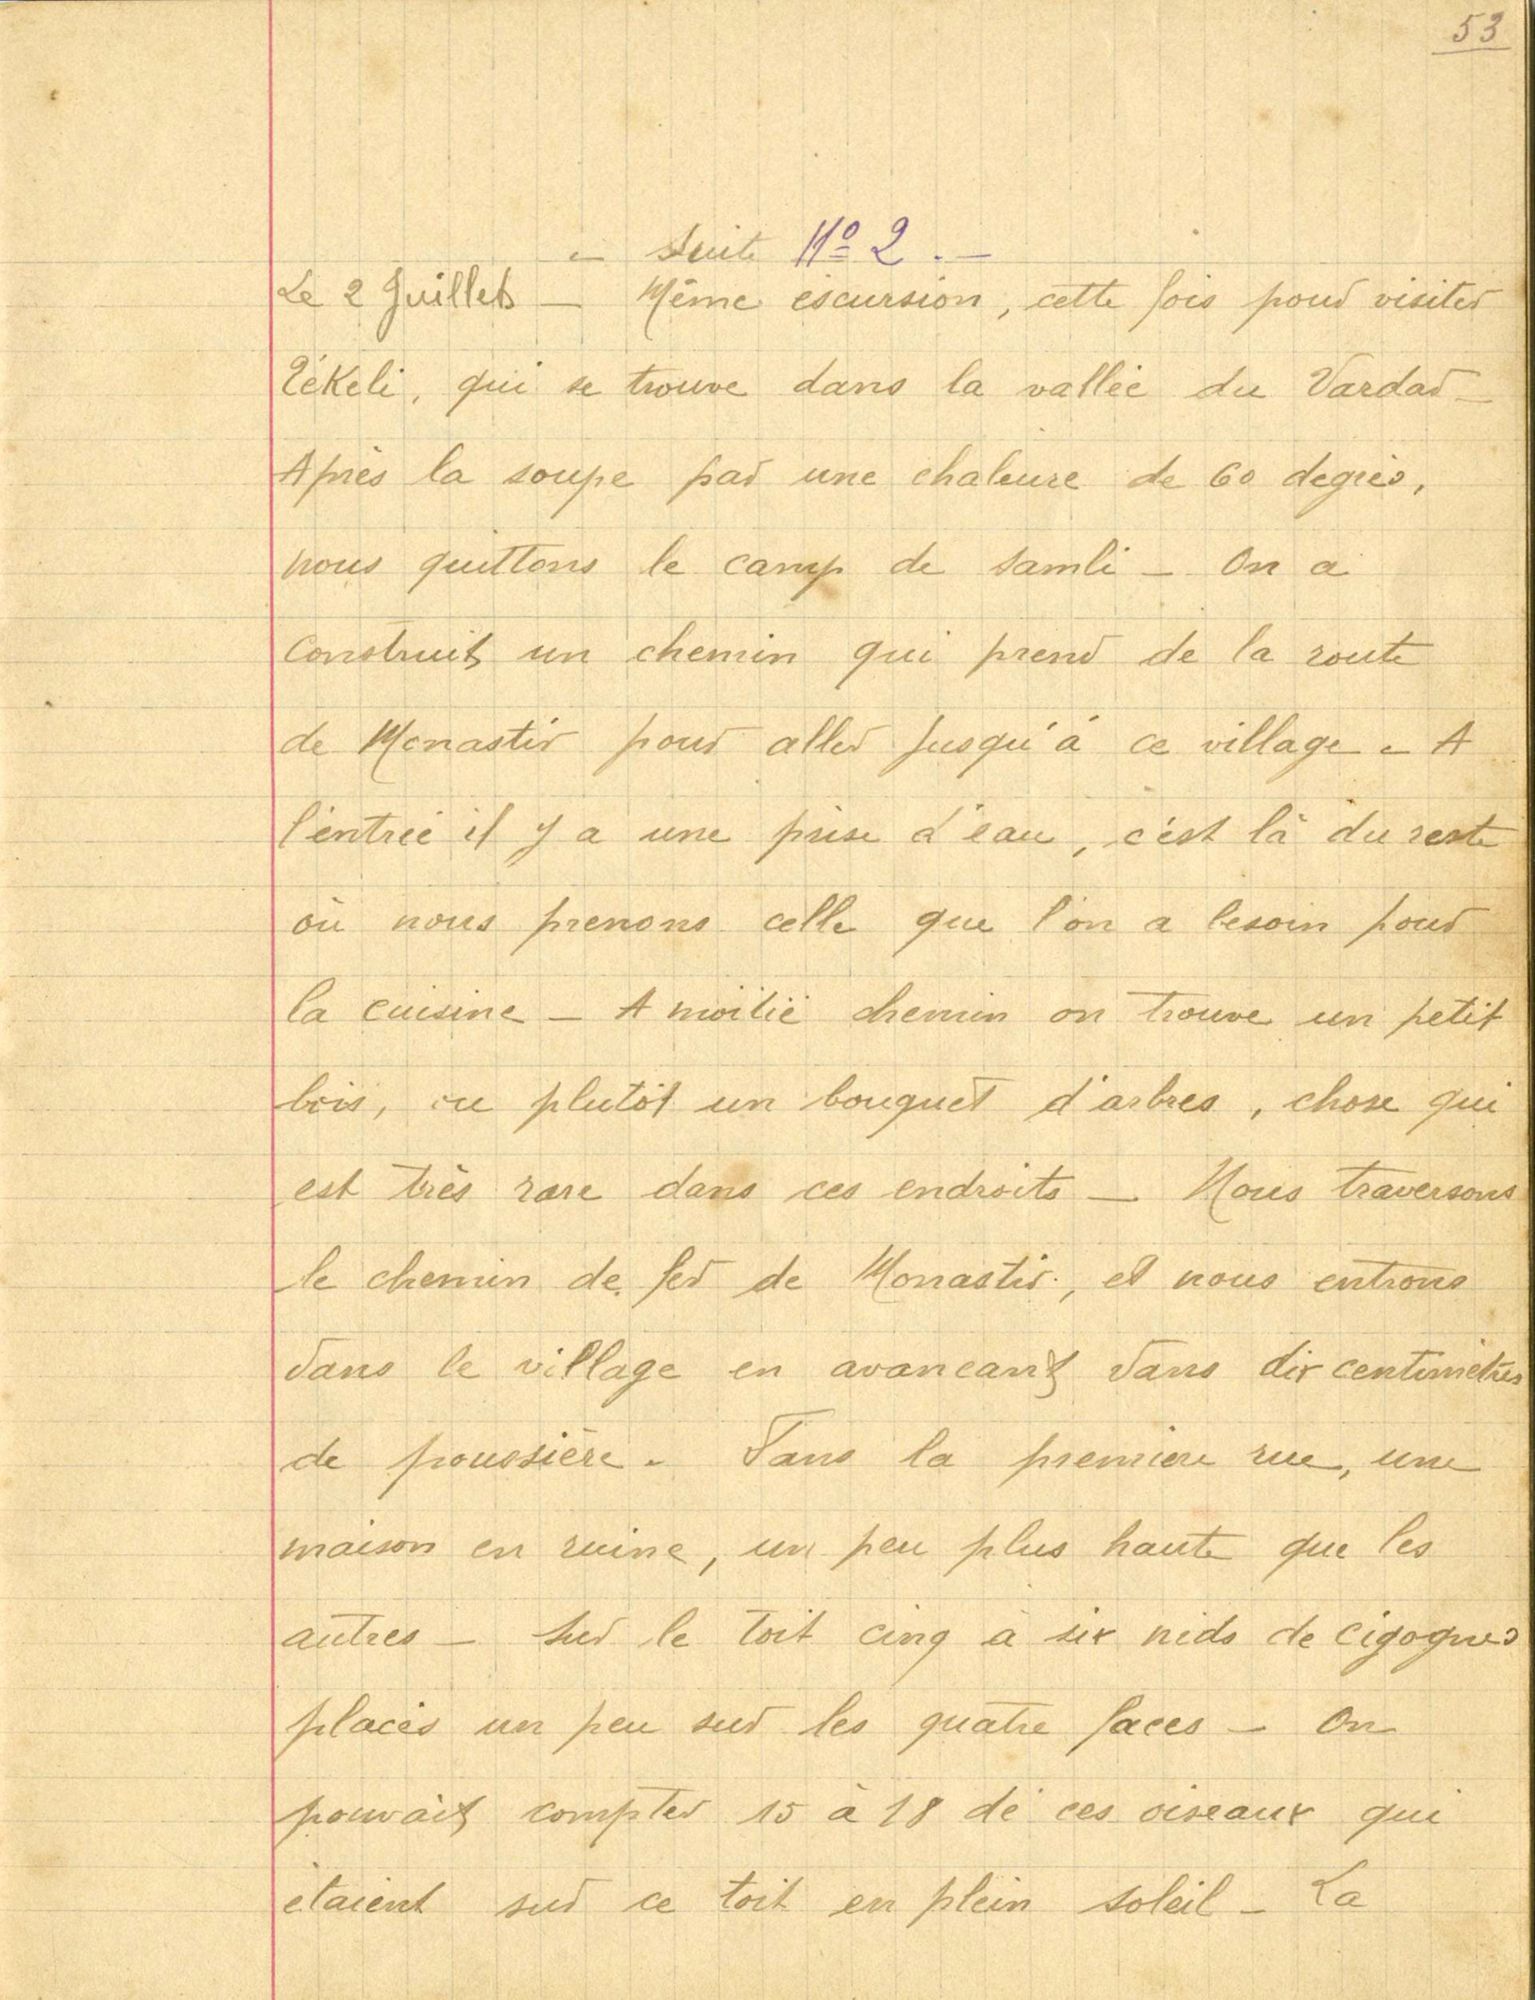 53
- Suite N° 2 . -
Le 2 Juillet - Même escursion, cette fois pour visiter
Tékeli, qui se trouve dans la vallée du Vardar -
Après la soupe par une chaleure de 60 degrés,
nous quittons le camp de Samli - On a
construit un chemin qui prend de la route
de Monastir pour aller jusqu'à ce village - A
l'entrée il y a une prise d'eau, c'est là du reste
où nous prenons celle que l'on a besoin pour
la cuisine - A moitié chemin on trouve un petit
bois, ou plutôt un bouquet d'arbres, chose qui
est très rare dans ces endroits - Nous traversons
le chemin de fer de Monastir, et nous entrons
dans le village en avancant dans dix centimètres
de poussière. Dans la premiere rue, une
maison en ruine, un peu plus haute que les
autres - Sur le toit cinq à six nids de cigognes
placés un peu sur les quatre faces - On
pouvait compter 15 à 18 de ces oiseaux qui
étaient sur ce toit en plein soleil - La